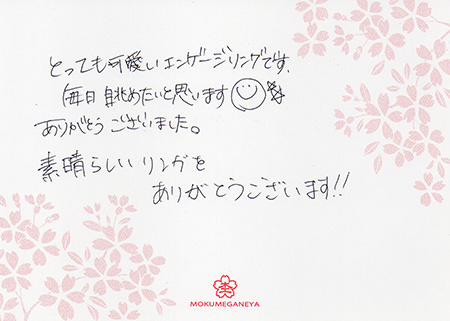 とっても可愛いエンゲージリングです、
毎日眺めたいと思います
ありがとうございました。
素晴らしいリングを
ありがとうございます!!
MOKUMEGANEYA